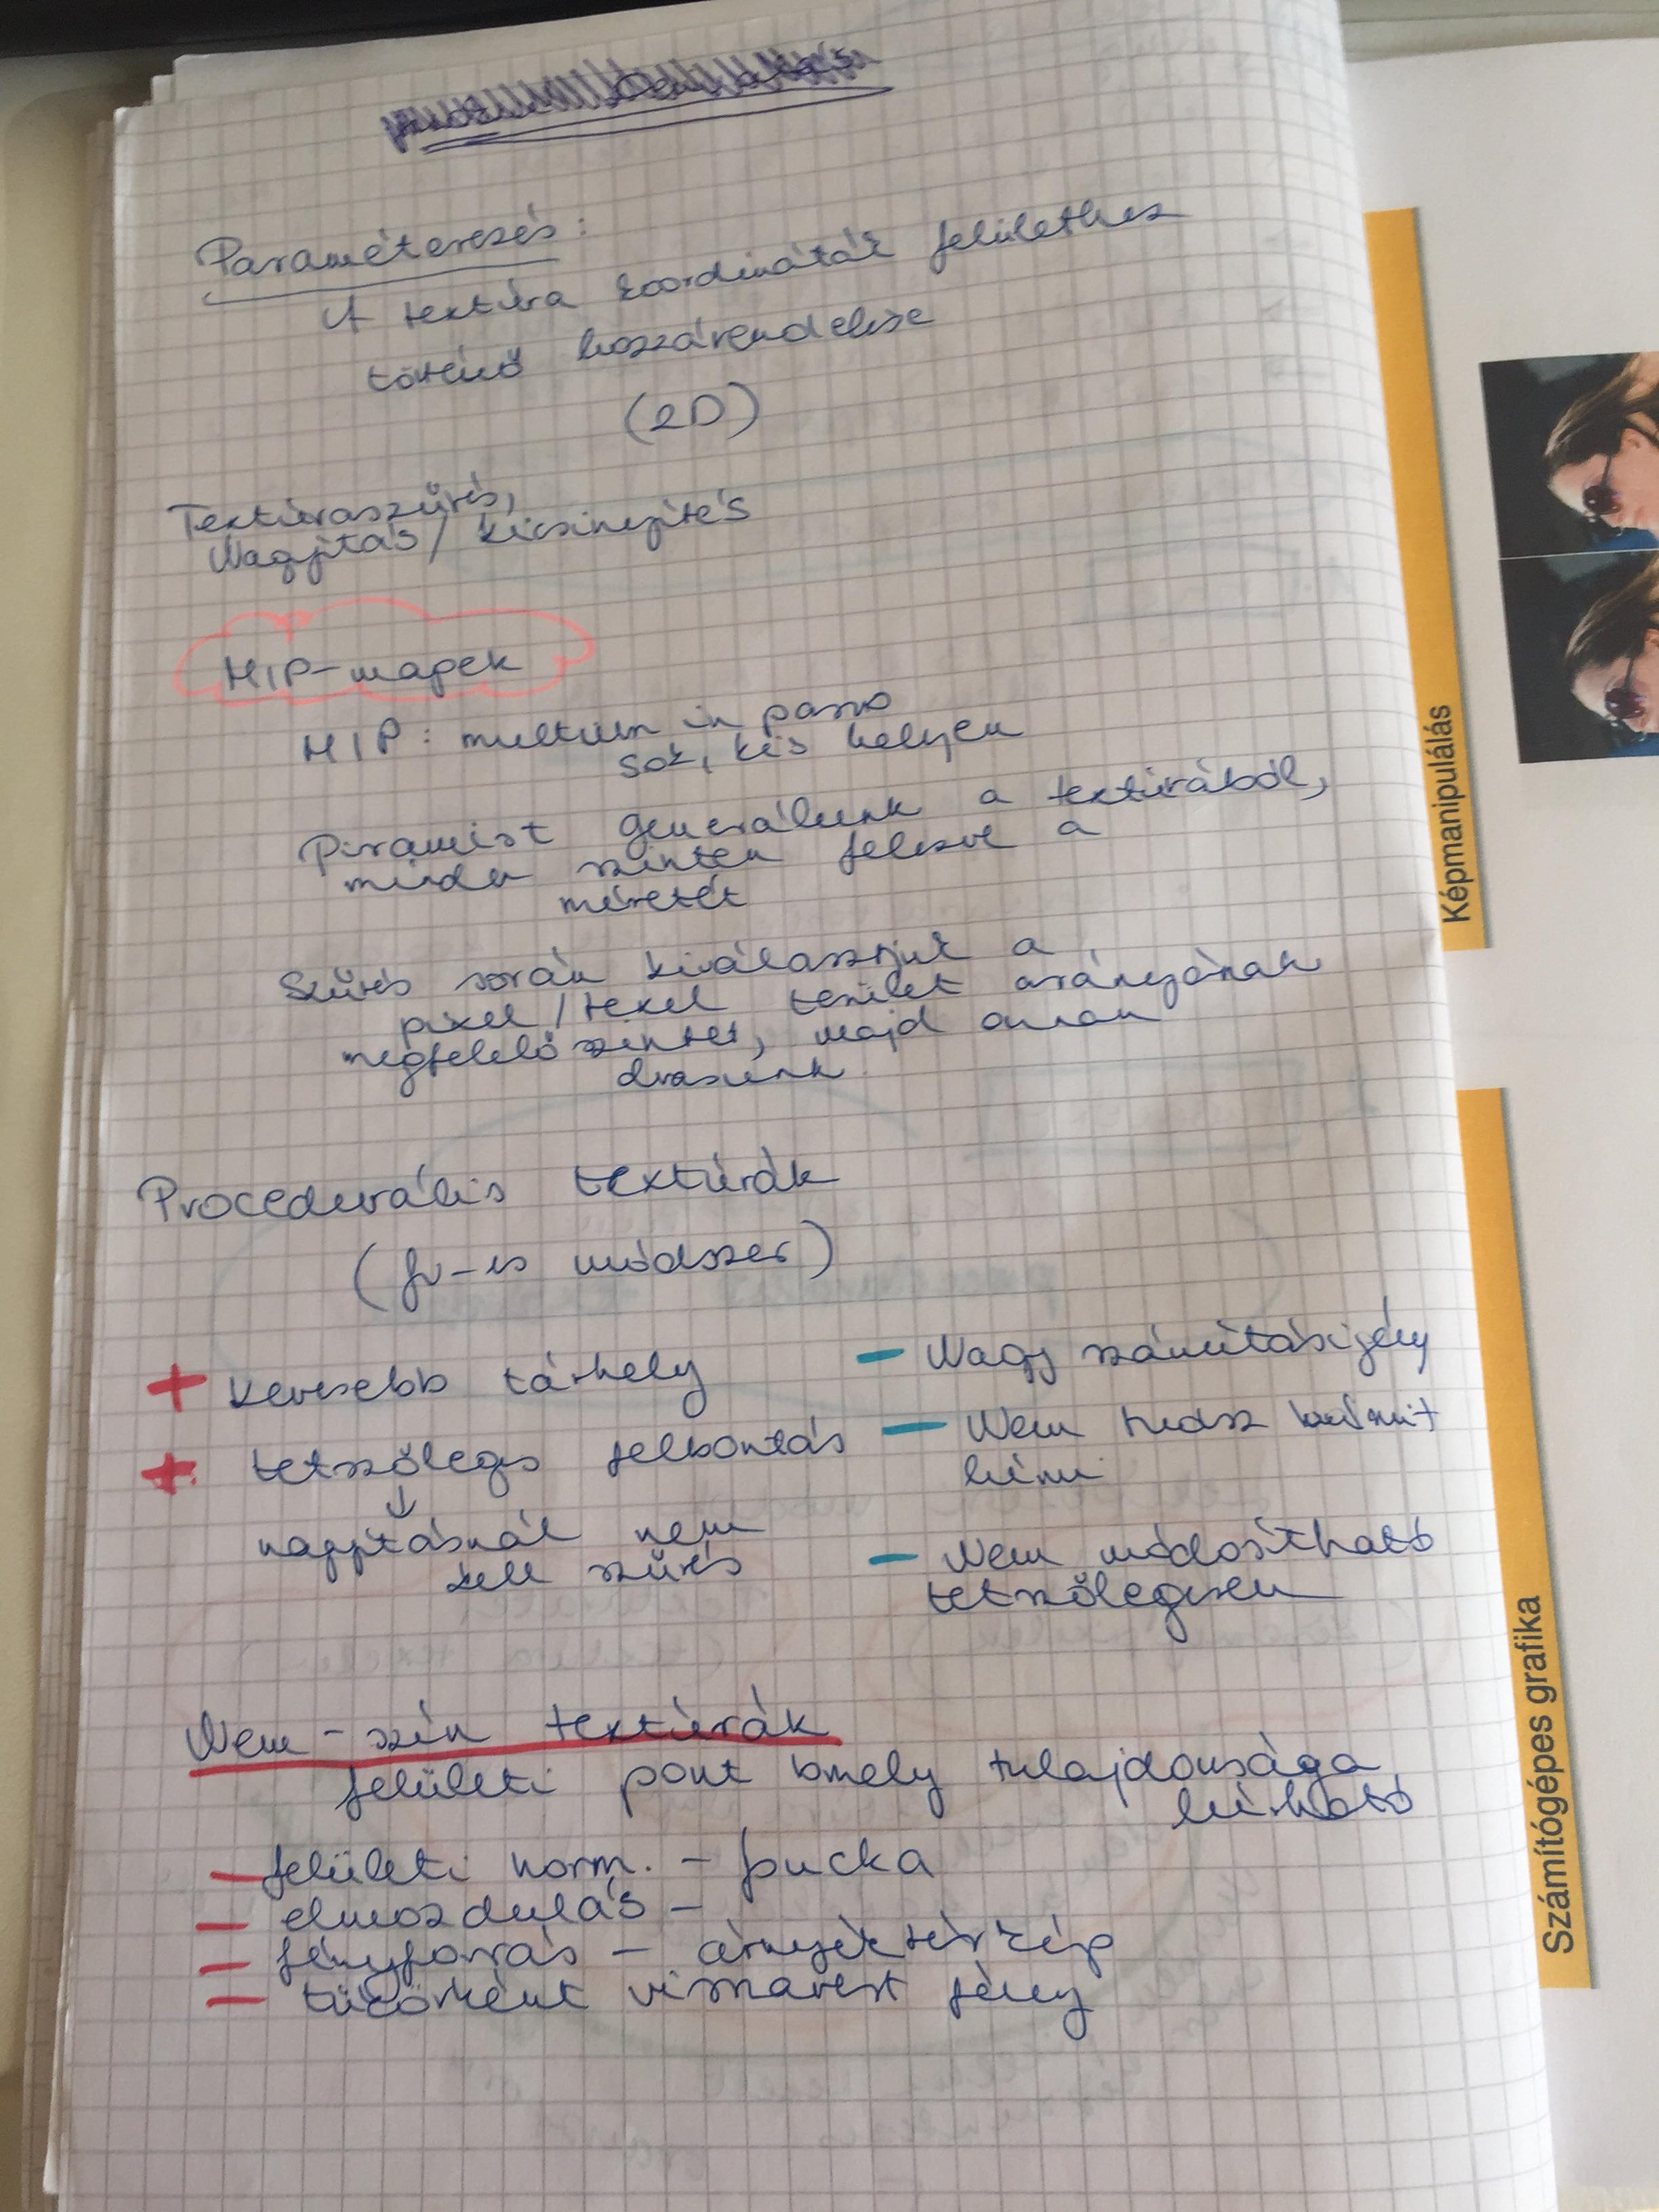 Paraméterezés:
A textúra koordináták felülethez
történő hozzárendelése
(2D)
Textúraszűrés,
Nagyítás / kicsinyítés
MIP-mapek
MIP: multum in parvo
sok, kis helyen
Piramist generálunk a textúrából,
minden szinten felezve a
méretét
Szűrés során kiválasztjuk a
pixel / texel terület arányának
megfelelő szintet, majd onnan
olvasunk
Procedurális textúrák
(fv-es módszer)
+ kevesebb tárhely
+ tetszőleges felbontás
↓
nagyításnál nem
kell szűrés
- Nagy számításigény
- Nem tudsz bármit
leírni
- Nem módosítható
tetszőlegesen
Nem-szín textúrák
felületi pont bmely tulajdonsága
leírható
- felületi norm. - bucka
- elmozdulás -
- fényforrás - árnyéktérkép
- tükörként visszavert fény
Képmanipulálás
Számítógépes grafika